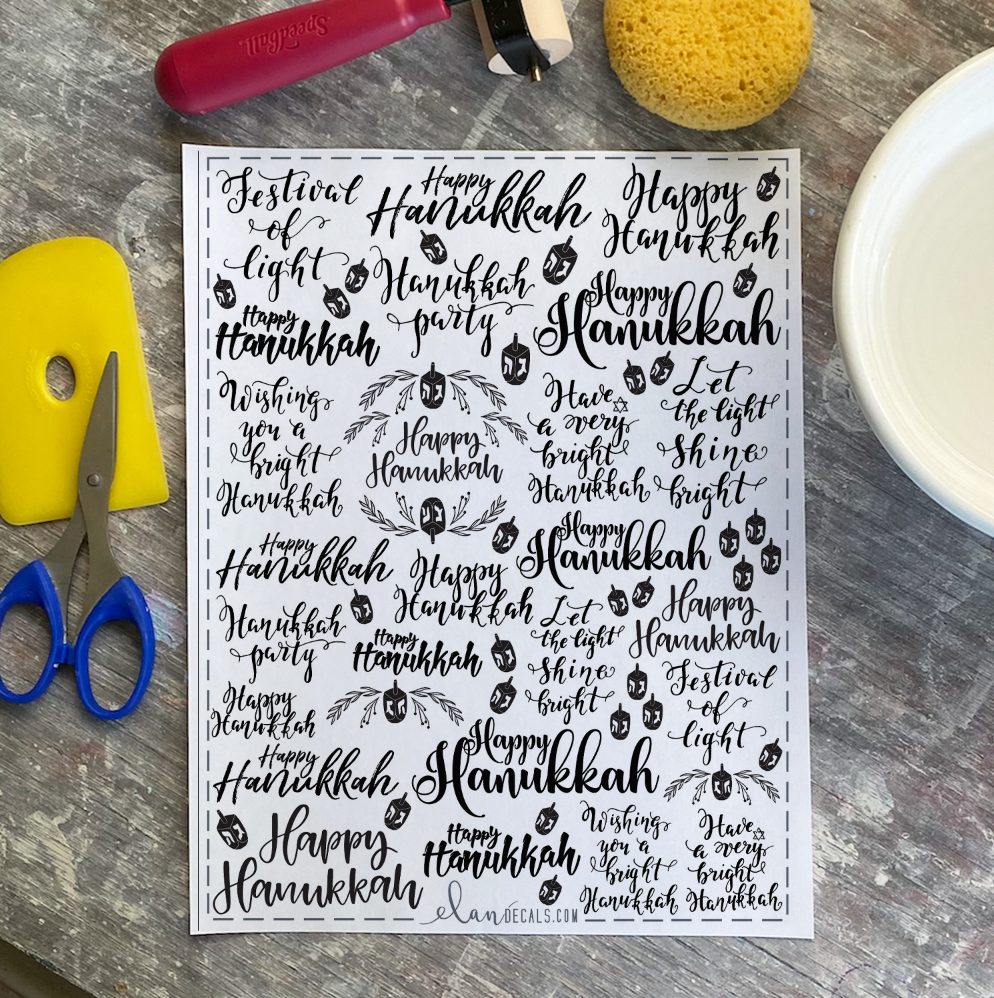 Speedball
Festival
of
light
Happy
Hanukkah
Happy
Hanukkah
Hanukkah
party
Happy
Hanukkah
Happy
Hanukkah
Wishing
you a
bright
Hanukkah
Happy
Hanukkah
Have
a very
bright
Hanukkah
Let
the light
shine
bright
Happy
Hanukkah
Happy
Hanukkah
Happy
Hanukkah
Hanukkah
party
Happy
Hanukkah
Let
the light
shine
bright
Happy
Hanukkah
Happy
Hanukkah
Festival
of
light
Happy
Hanukkah
Happy
Hanukkah
Happy
Hanukkah
Happy
Hanukkah
Wishing
you a
bright
Hanukkah
Have
a very
bright
Hanukkah
elanDECALS.COM